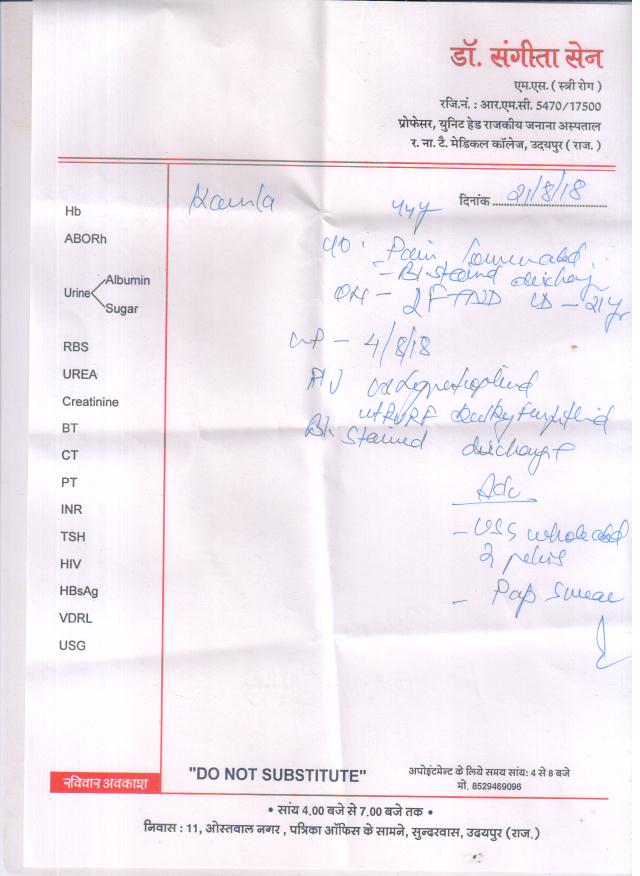 डॉ. संगीता सेन
एम.एस. ( स्त्री रोग )
रजि.नं. : आर.एम.सी. 5470/17500
प्रोफेसर, युनिट हेड राजकीय जनाना अस्पताल
र. ना. टै. मेडिकल कॉलेज, उदयपुर ( राज. )
दिनांक 21/8/18
Kamla 44y
Hb
ABORh
C/O . Pain lower abd.
- Bl stained discharge
Urine Albumin
Sugar
OH - 2 FTND LD - 21 yr
LMP - 4/8/18
RBS
UREA
P/V
Creatinine
BT
Bl. Stained discharge
CT
PT
Adv
INR
- USG whole abd
TSH
& pelvis
HIV
HBsAg
- Pap Smear
VDRL
USG
रविवार अवकाश
"DO NOT SUBSTITUTE"
अपोइंटमेन्ट के लिये समय सांय: 4 से 8 बजे
मो. 8529469096
• सांय 4.00 बजे से 7.00 बजे तक •
निवास : 11, ओस्तवाल नगर , पत्रिका ऑफिस के सामने, सुन्दरवास, उदयपुर (राज.)